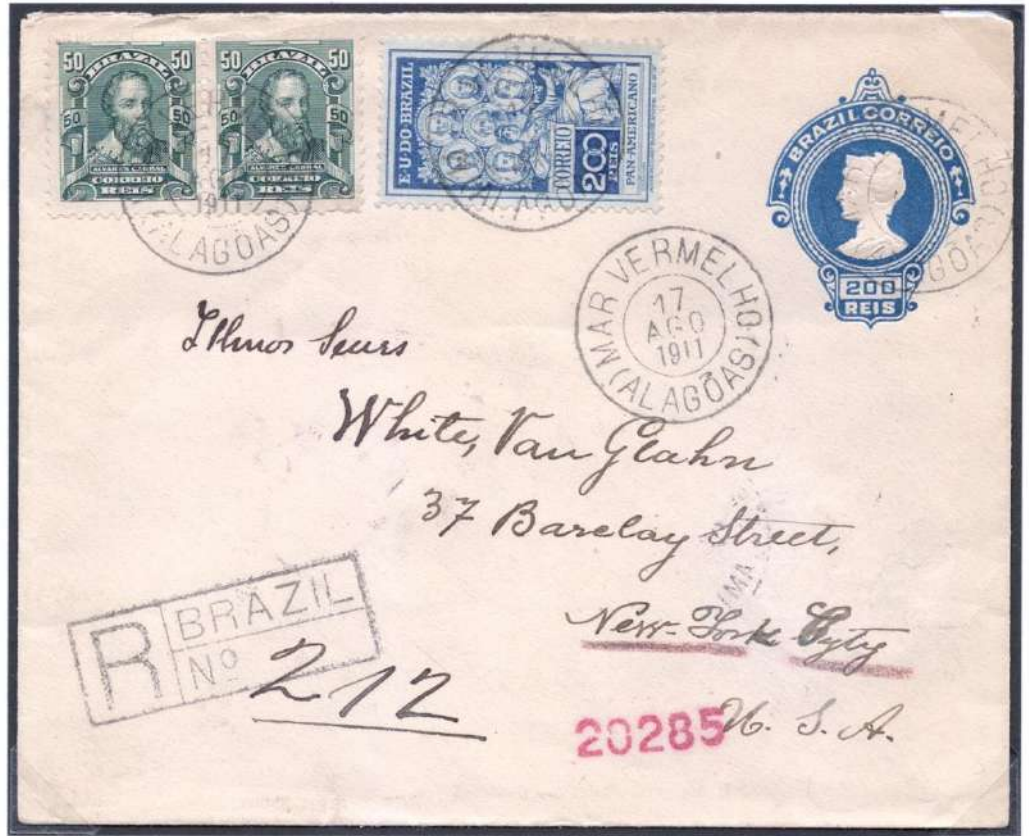 50 BRAZIL 50
50 50
ALVARES CABRAL
CORREIO
REIS
50 BRAZIL 50
50 50
ALVARES CABRAL
CORREIO
REIS
1911
(ALAGÔAS)
E.U.DO BRAZIL
CORREIO
200
REIS
PAN-AMERICANO
BRAZIL CORREIO
200
REIS
MAR VERMELHO
17
AGO
1911
(ALAGÔAS)
Illmos Snrs
White, Van Glahn
37 Barclay Street,
New-York Cyty
U. S. A.
R BRAZIL
Nº 212
20285